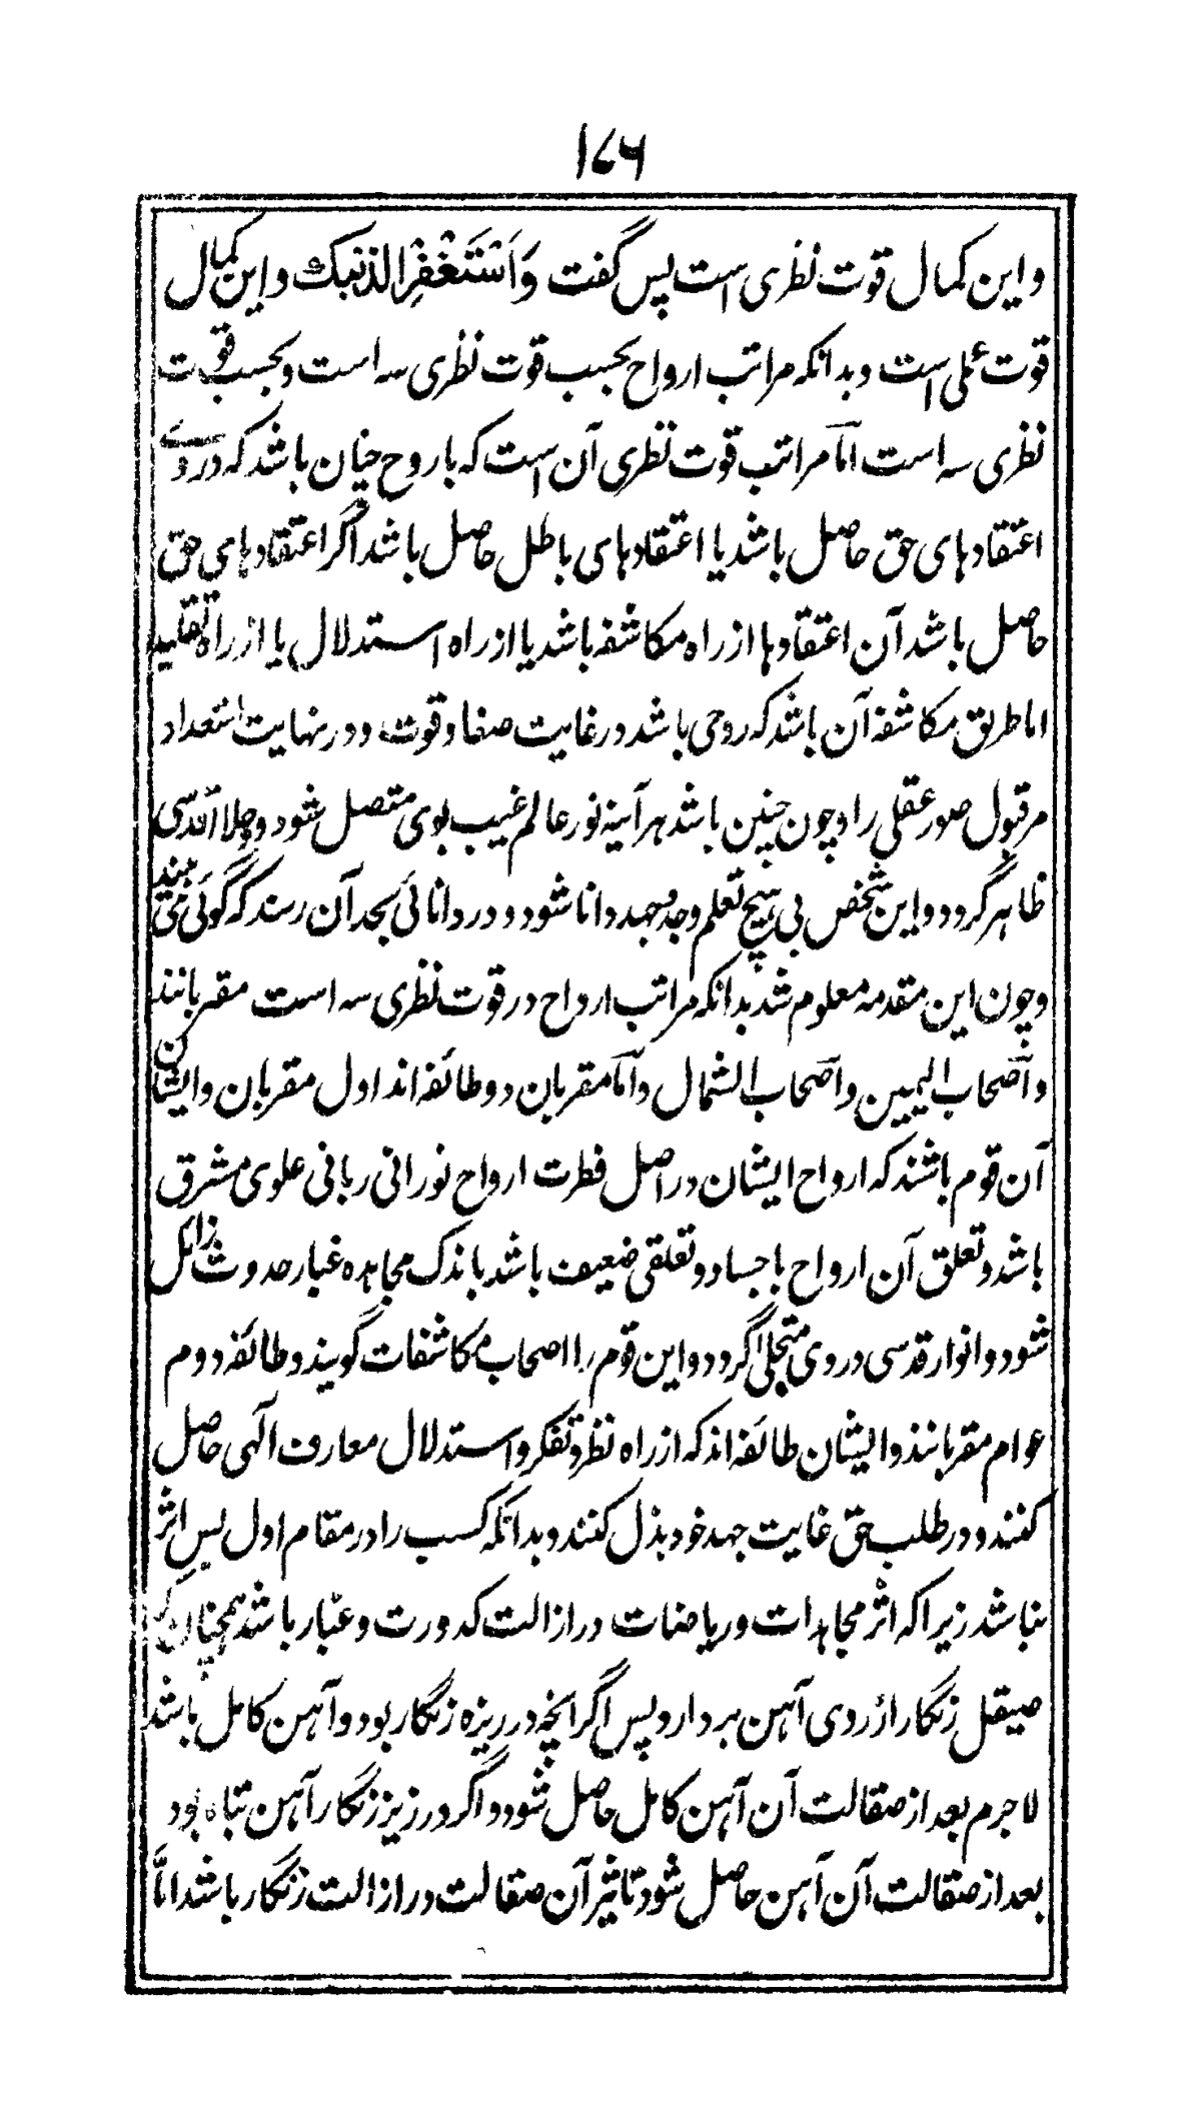 ۱۷۶
و این کمال قوت نظری است پس گفت وَاَسْتَغْفِرْ الذنبک و این کمال
قوت عملی است و بدانکه مراتب ارواح بحسب قوت نظری سه است و بحسب قوت
نظری سه است اما مراتب قوت نظری آن است که با روح چنان باشد که در وے
اعتقادهای حق حاصل باشد یا اعتقادهای باطل حاصل باشد اگر اعتقادهای حق
حاصل باشد آن اعتقادها از راه مکاشفه باشد یا از راه استدلال یا از راه تقلید
اما طریق مکاشفه آن باشد که روحی باشد در غایت صفا و قوت و در نهایت استعداد
مر قبول صور عقلی را و چون چنین باشد هر آینه نور عالم غیب بوی متصل شود و جلا اقدسی
ظاهر گردد و این شخص بی هیچ تعلم و جد و جهد دانا شود و در دانائی بحد آن رسد که گوئی می بیند
و چون این مقدمه معلوم شد بدانکه مراتب ارواح در قوت نظری سه است مقربانند
و آصحاب الیمین و آصحاب الشمال و آما مقربان دو طائفه اند اول مقربان و ایشان
آن قوم باشند که ارواح ایشان در اصل فطرت ارواح نورانی ربانی علوی مشرق
باشد و تعلق آن ارواح باجساد و تعلقی ضعیف باشد باندک مجاهده غبار حدوث زائل
شود و انوار قدسی در وی متجلی گردد و این قوم را اصحاب مکاشفات گویند و طائفه دوم
عوام مقربانند و ایشان طائفه اند که از راه نظر و تفکر و استدلال معارف آلهی حاصل
کنند و در طلب حق غایت جهد خود بذل کنند و بدانکه کسب را در مقام اول بس اثر
نباشد زیرا که اثر مجاهدات و ریاضات در ازالت کدورت و غبار باشد همچنان که
صیقل زنگار از روی آهن بردارد پس اگر آنچه در ریزه زنگار بود و آهن کامل باشد
لاجرم بعد از صقالت آن آهن کامل حاصل شود و اگر در زیر زنگار آهن تباه بود
بعد از صقالت آن آهن حاصل شود تاثیر آن صقالت در ازالت زنگار باشد امّا